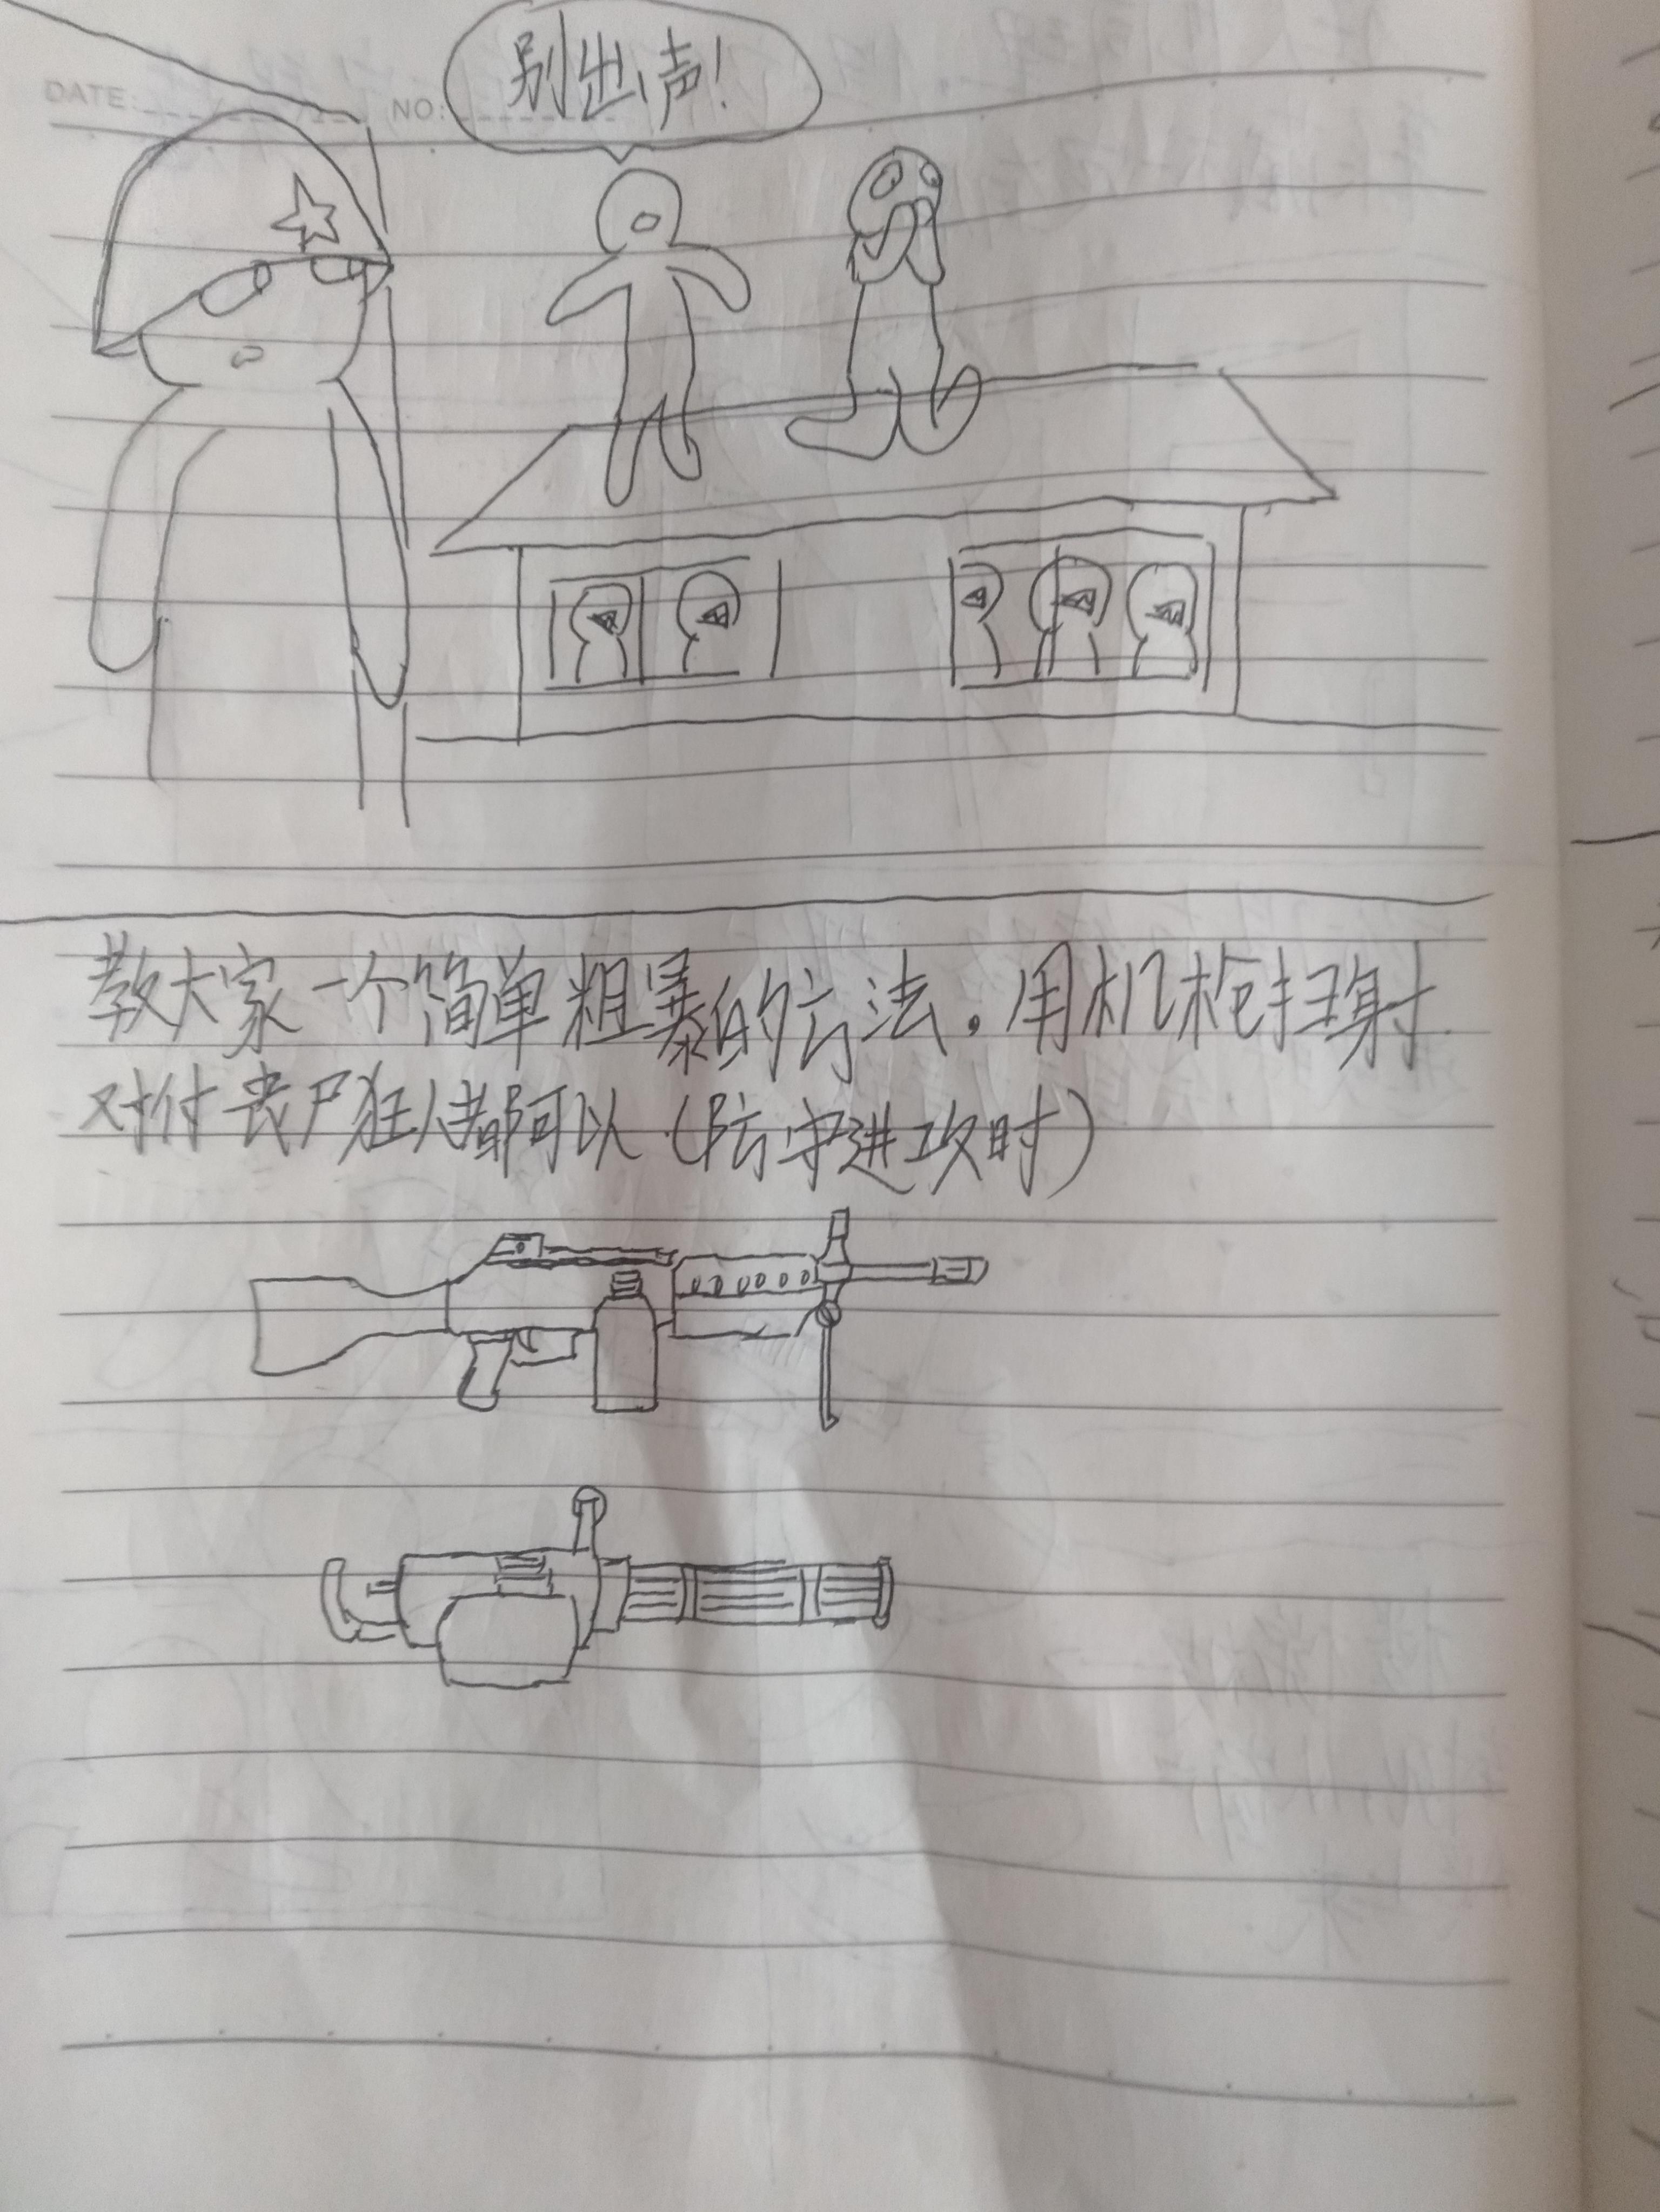 DATE: NO:
别出声！
教大家一个简单粗暴的方法。用机枪扫射
对付丧尸狂人都可以（防守进攻时）